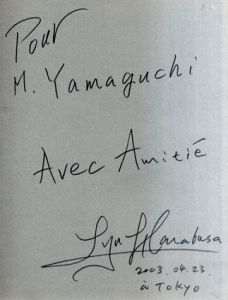 Pour
M. Yamaguchi
Avec Amitié
Lyu Hanabusa
2003.04.23
à TOKYO